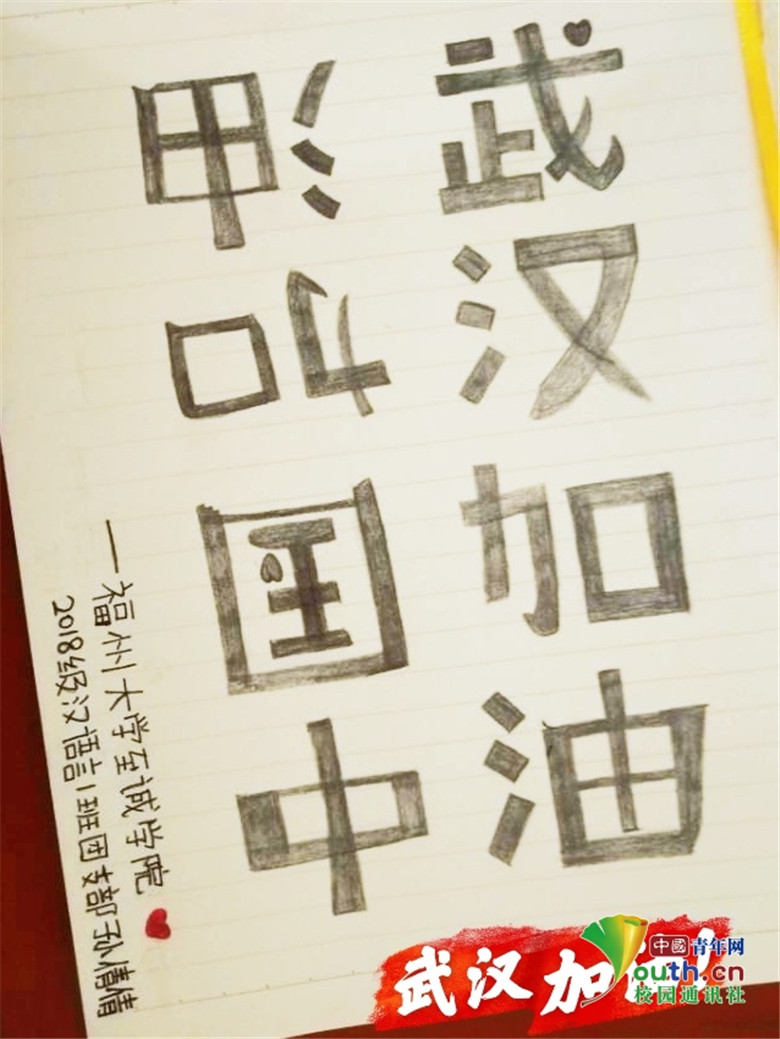 武汉加油
中国加油
—福州大学至诚学院
2018级汉语言1班团支部孙倩倩
武汉加油!
中國青年网
youth.cn
校园通讯社